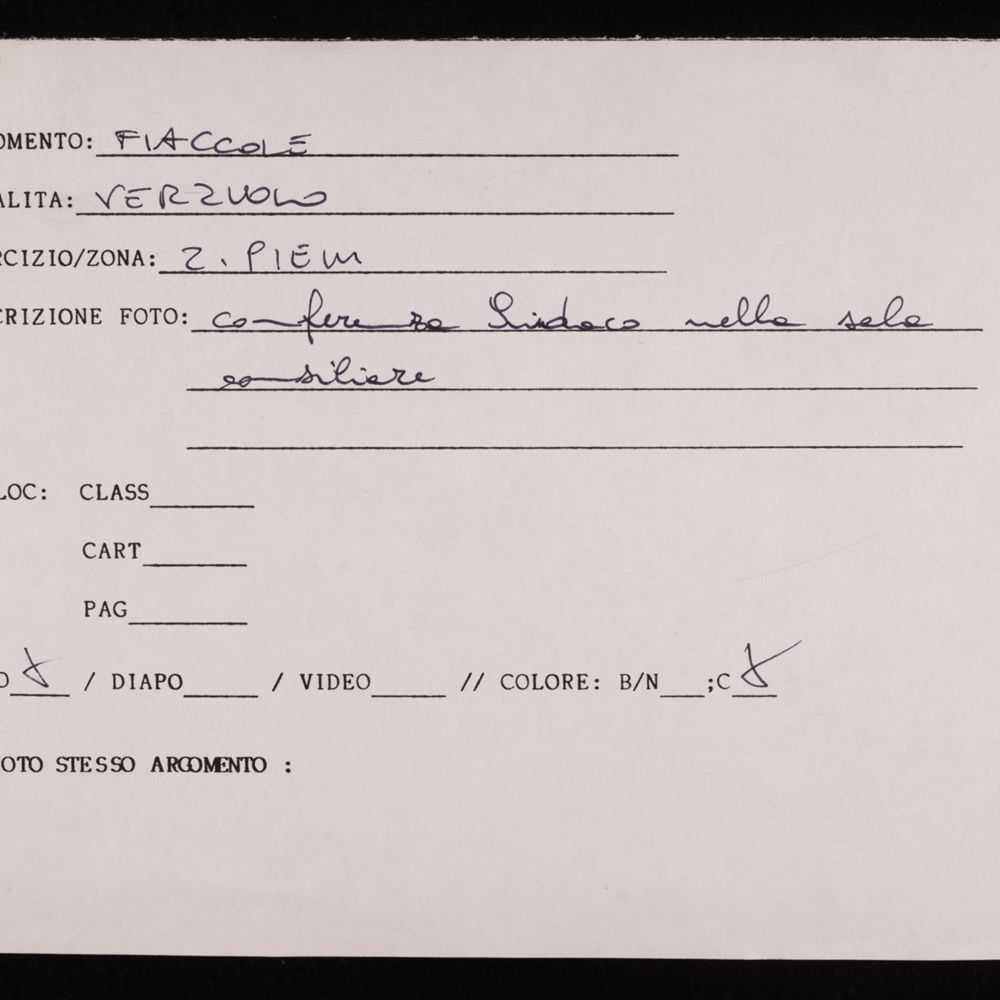 OMENTO: FIACCOLE
ALITA: VERZUOLO
RCIZIO/ZONA: Z. PIEM
CRIZIONE FOTO: conferenza Sindaco nella sala
consiliare
LOC: CLASS
CART
PAG
O X / DIAPO / VIDEO // COLORE: B/N ;C X
OTO STESSO ARGOMENTO :